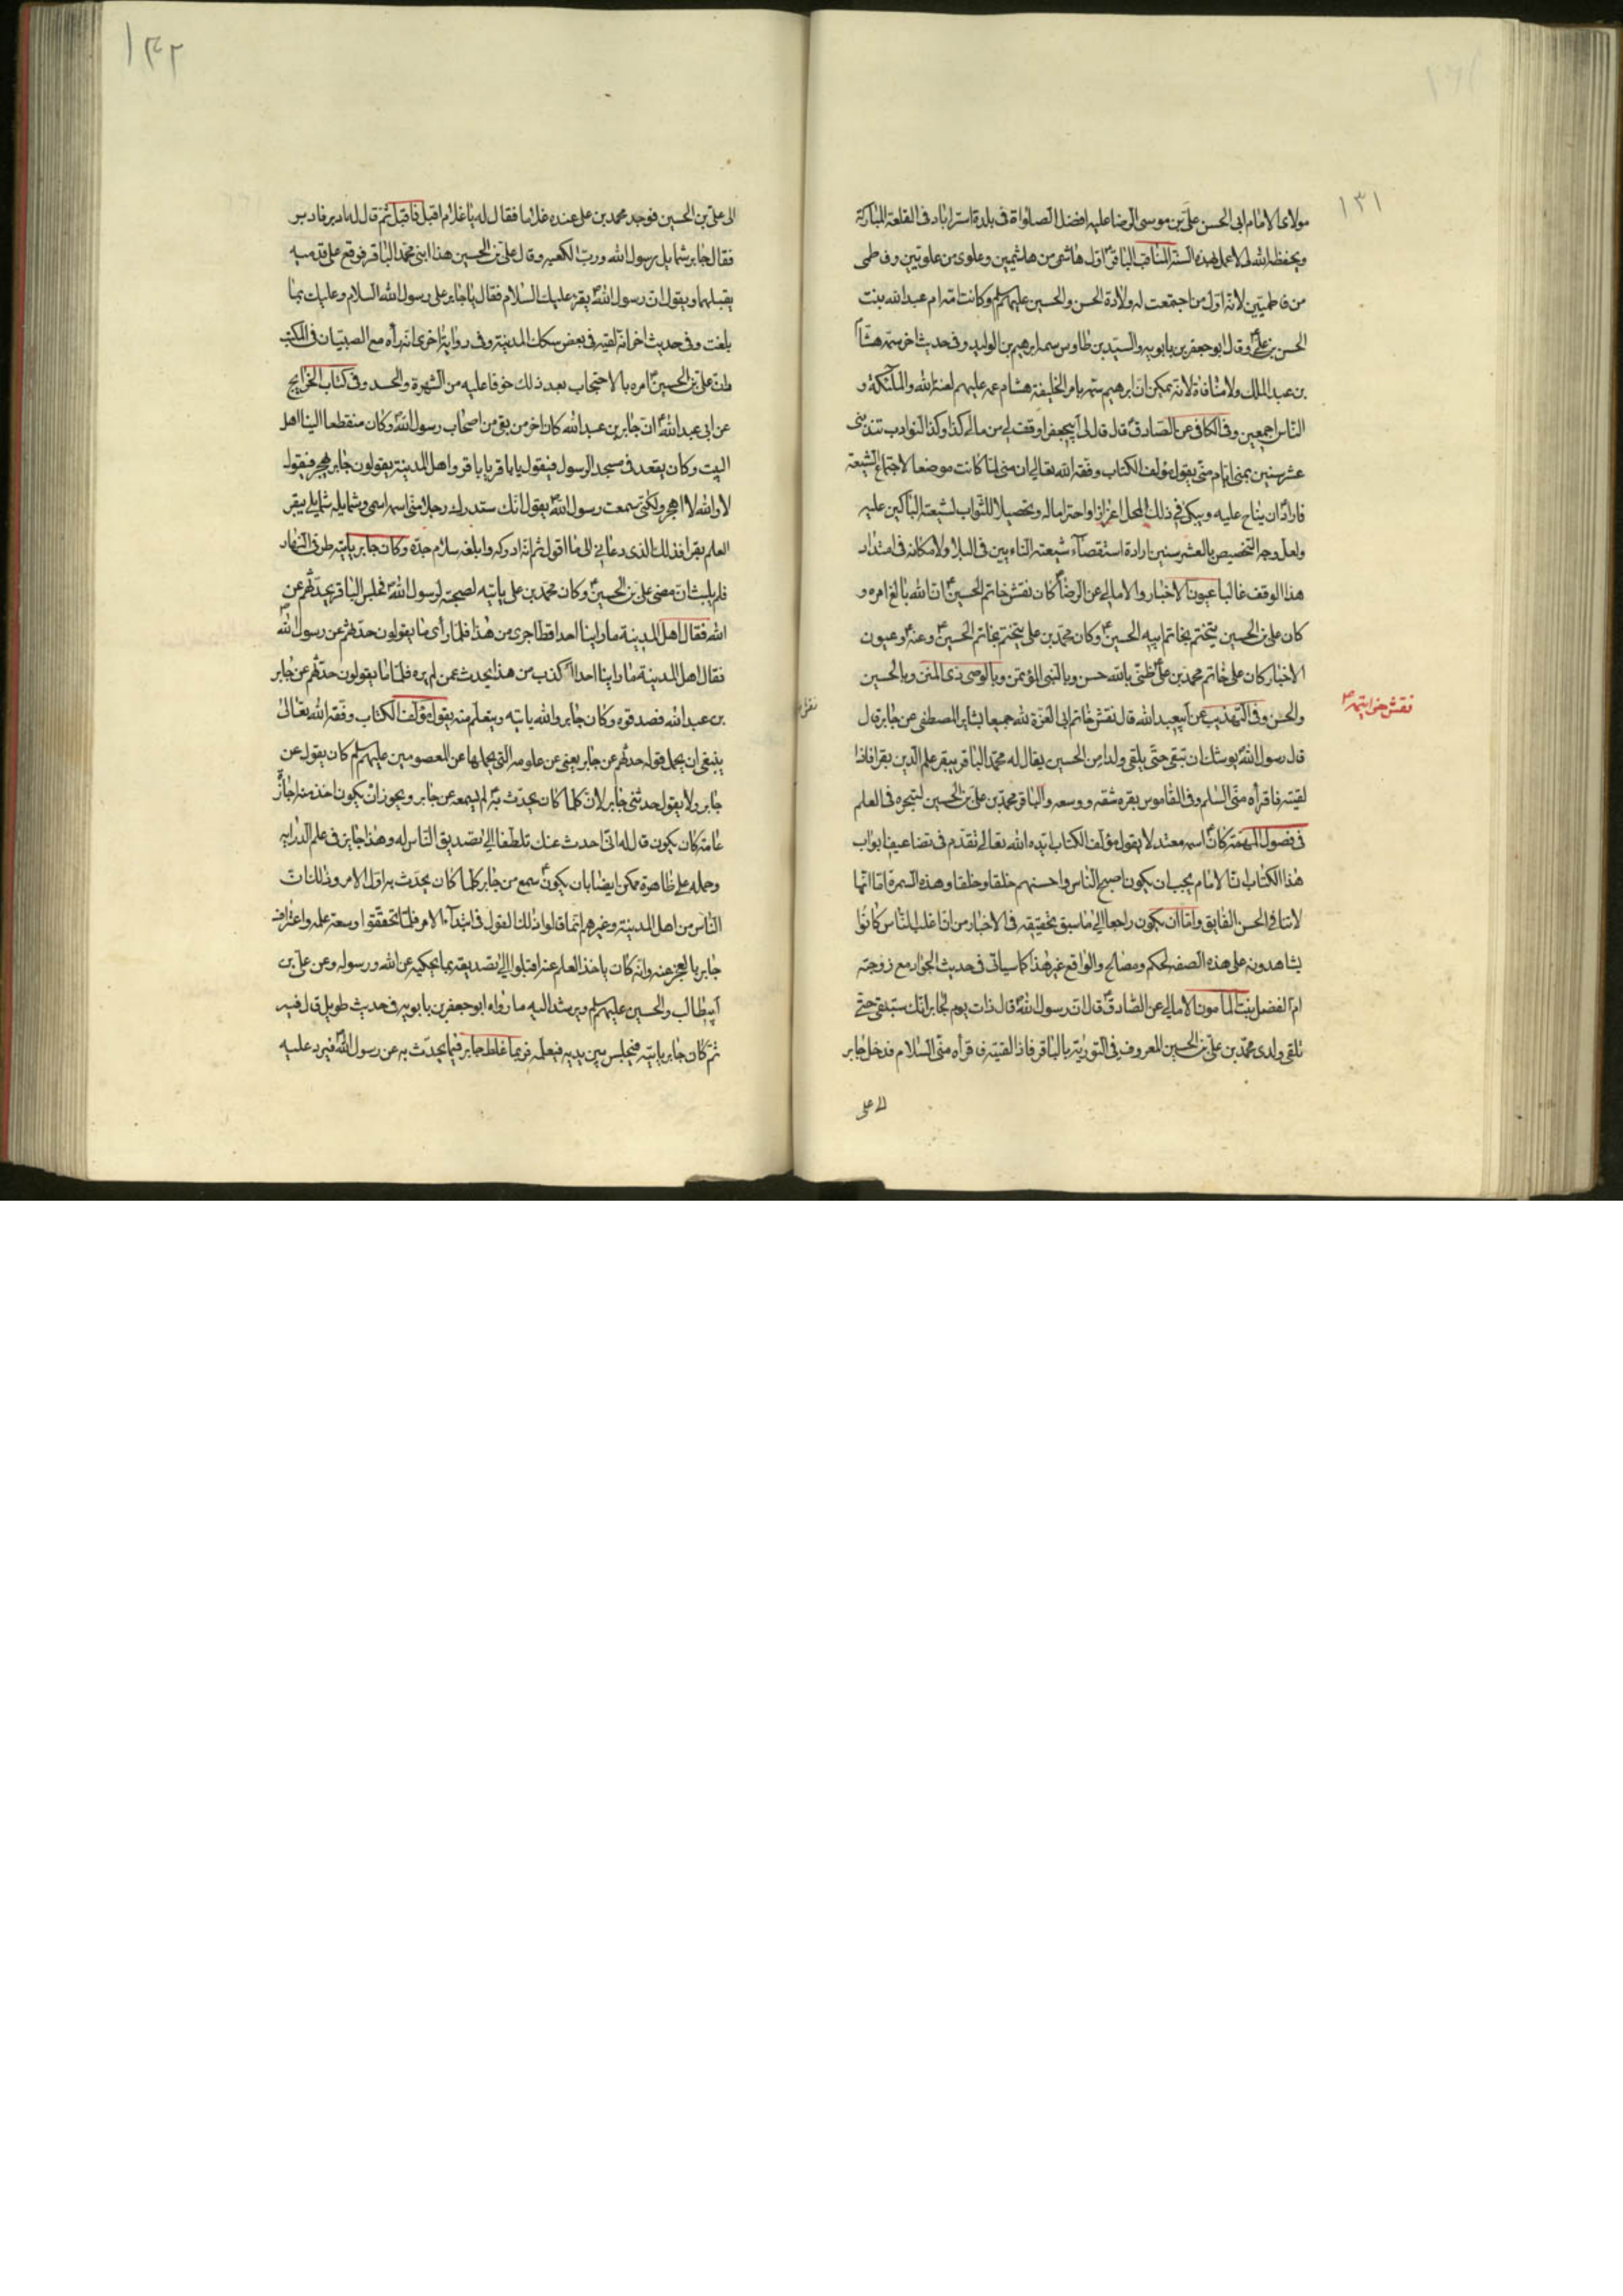 ١٣١
مولاى الامام ابى الحسن على بن موسى الرضا عليه افضل الصلواة فى بلدة استراباد فى القلعة المباركة
ويحفظ الله لى لاعمل لهذه السنة المناقب الباقرع اول هاشمى من هاشميين وعلوى من علويين وفاطمى
من فاطميين لانه اول من اجتمعت له ولادة الحسن والحسين عليهما سلم وكانت امه ام عبد الله بنت
الحسن بن علىع وقال ابو جعفر بن بابويه والسيد بن طاوس سمه ابرهيم بن الوليد وفى حديث اخر سمه هشام
بن عبد الملك ولا منافاة لانه يمكن ان ابرهيم سمه بامر الخليفة هشام عمه عليهم لعنة الله والملائكة و
الناس اجمعين وفى الكافى عن الصادقع قال قال لى ابيجعفر اوقف لى من مالى كذا وكذا النوادب تندبنى
عشر سنين بمنى ايام منى يقول مؤلف الكتاب وفقه الله تعالى ان منى لما كانت موضعا لاجتماع الشيعة
فارادع ان يناح عليه ويبكى فى ذلك المحل اعزازا واحتراما له وتحصيلا للثواب لشيعته الباكين عليه
ولعل وجه التخصيص بالعشر سنين ارادة استقصاء شيعته النائيين فى البلاد ولامكانه فى امتداد
هذا الوقف غالبا عيون الاخبار والامالى عن الرضاع كان نقش خاتم الحسينع ان الله بالغ امره و
كان على بن الحسين يتختم بخاتم ابيه الحسينع وكان محمد بن على يتختم بخاتم الحسينع وعنهع وعيون
الاخبار كان على خاتم محمد بن علىع ظنى بالله حسن وبالنبى المؤتمن وبالوصى ذى المنن وبالحسين
والحسن وفى التهذيب عن ابيعبد الله قال نقش خاتم ابى العزة لله جميعا بشاير المصطفى عن جابر قال
نقش خواتيمهم
قال رسول اللهص يوشك ان تبقى حتى يلقى ولدا من الحسين يقال له محمد الباقر يبقر علم الدين بقرا فاذا
لقيته فاقرأه منى السلم وفى القاموس بقره شقه ووسعه والباقر محمد بن على بن الحسين لتبحره فى العلم
فى فصول المهمة كانع اسمر معتدلا يقول مؤلف الكتاب ايده الله تعالى تقدم فى تضاعيف ابواب
هذا الكتاب ان الامام يجب ان يكون اصبح الناس واحسنهم خلقا وخلقا وهذه السمرة اما انها
لا تنافى الحسن الفايق واما ان يكون راجعا الى ما سبق تحقيقه فى الاخبار من ان اغلب الناس كانوا
يشاهدونه على هذه الصفة لحكم ومصالح والواقع غير هذا كما سياتى فى حديث الجواد مع زوجته
ام الفضل بنت المامون الامالى عن الصادقع قال ان رسول اللهص قال ذات يوم لجابر انك ستبقى حتى
تلقى ولدى محمد بن على بن الحسين المعروف فى التورية بالباقر فاذا لقيته فاقرأه منى السلام فدخل جابر
الى على
١٣٢
الى على بن الحسين فوجد محمد بن على عنده غلاما فقال له يا غلام اقبل فاقبل ثم قال له ادبر فادبر
فقال جابر شمايل رسول الله ورب الكعبة وقال على بن الحسين هذا ابنى محمد الباقر فوقع على قدميه
يقبلهما ويقول ان رسول اللهص يقرء عليك السلام فقال يا جابر على رسول الله السلام وعليك بما
بلغت وفى حديث اخر انه لقيه فى بعض سكك المدينة وفى رواية اخرى انه رأه مع الصبيان فى المكتب
وان على بن الحسينع امره بالاحتجاب بعد ذلك خوفا عليه من الشهرة والحسد وفى كتاب الخرايج
عن ابى عبد اللهع ان جابر بن عبد الله كان اخر من بقى من اصحاب رسول اللهص وكان منقطعا الينا اهل
البيت وكان يقعد فى مسجد الرسول فيقول يا باقر يا باقر واهل المدينة يقولون جابر يهجر فيقول
لا والله لا اهجر ولكنى سمعت رسول اللهص يقول انك ستدرك رجلا منى اسمه اسمى وشمايله شمايلى يبقر
العلم بقرا فذلك الذى دعانى الى ما اقول ثم انه ادركه وابلغه سلام جده وكان جابر ياتيه طرفى النهار
فلم يلبث ان مضى على بن الحسينع وكان محمد بن على ياتيه لصحبته لرسول اللهص فجلس الباقر يحدثهم عن
الله فقال اهل المدينة ما راينا احدا قط اجرى من هذا فلما رأى ما يقولون حدثهم عن رسول اللهص
فقال اهل المدينة ما راينا احدا اكذب من هذا يحدث عمن لم يره فلما ما يقولون حدثهم عن جابر
بن عبد الله فصدقوه وكان جابر والله ياتيه ويتعلم منه يقول مؤلف الكتاب وفقه الله تعالى
ينبغى ان يحمل قوله حدثهم عن جابر يعنى عن علومه التى يحملها عن المعصومين عليهم سلم كان يقول عن
جابر ولا يقول حدثنى جابر لان كلما كان يحدث به لم يسمعه عن جابر ويجوز ان يكون اخذ منه اجازة
عامة كان يكون قال له انى احدث عنك تلطفا الى تصديق الناس له وهذا جايز فى علم الدراية
وحمله على ظاهره ممكن ايضا بان يكونع سمع من جابر كلما كان يحدث به اول الامر وذلك ان
الناس من اهل المدينة وغيرهم انما قالوا ذلك القول فى ابتداء الامر فلما تحققوا وسعة علمه واعتراف
جابر بالعجز عنه وانه كان ياخذ العلم عنه اقبلوا الى تصديقه بما يحكيه عن الله ورسوله وعن على بن
ابيطالب والحسين عليهم سلم ويرشد اليه ما رواه ابو جعفر بن بابويه فى حديث طويل قال فيه
ثم كان جابر ياتيه فيجلس بين يديه فيعلمه فربما غلط جابر فيما يحدث به عن رسول اللهص فيرد عليه